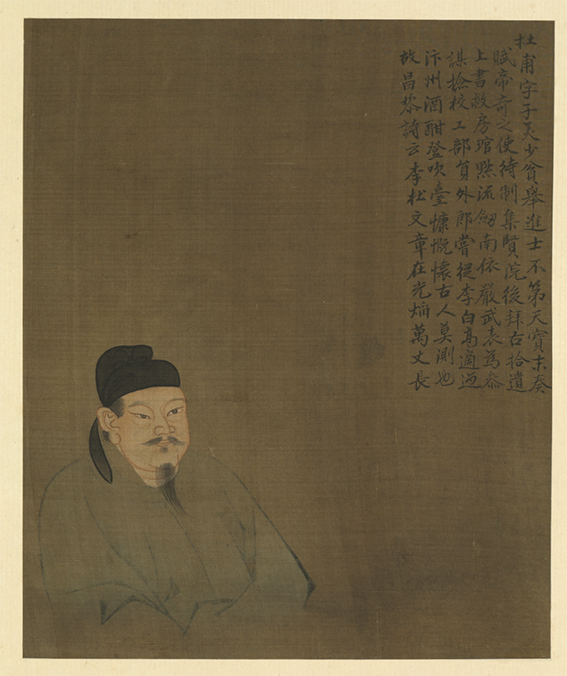 杜甫字子美少貧舉進士不第天寶末奏
賦帝奇之使待制集賢院後拜右拾遺
上書救房琯黜流劒南依嚴武表為叅
謀撿校工部貟外郎嘗從李白高適過
汴州酒酣登吹臺慷慨懷古人莫測也
故昌黎詩云李杜文章在光焰萬丈長